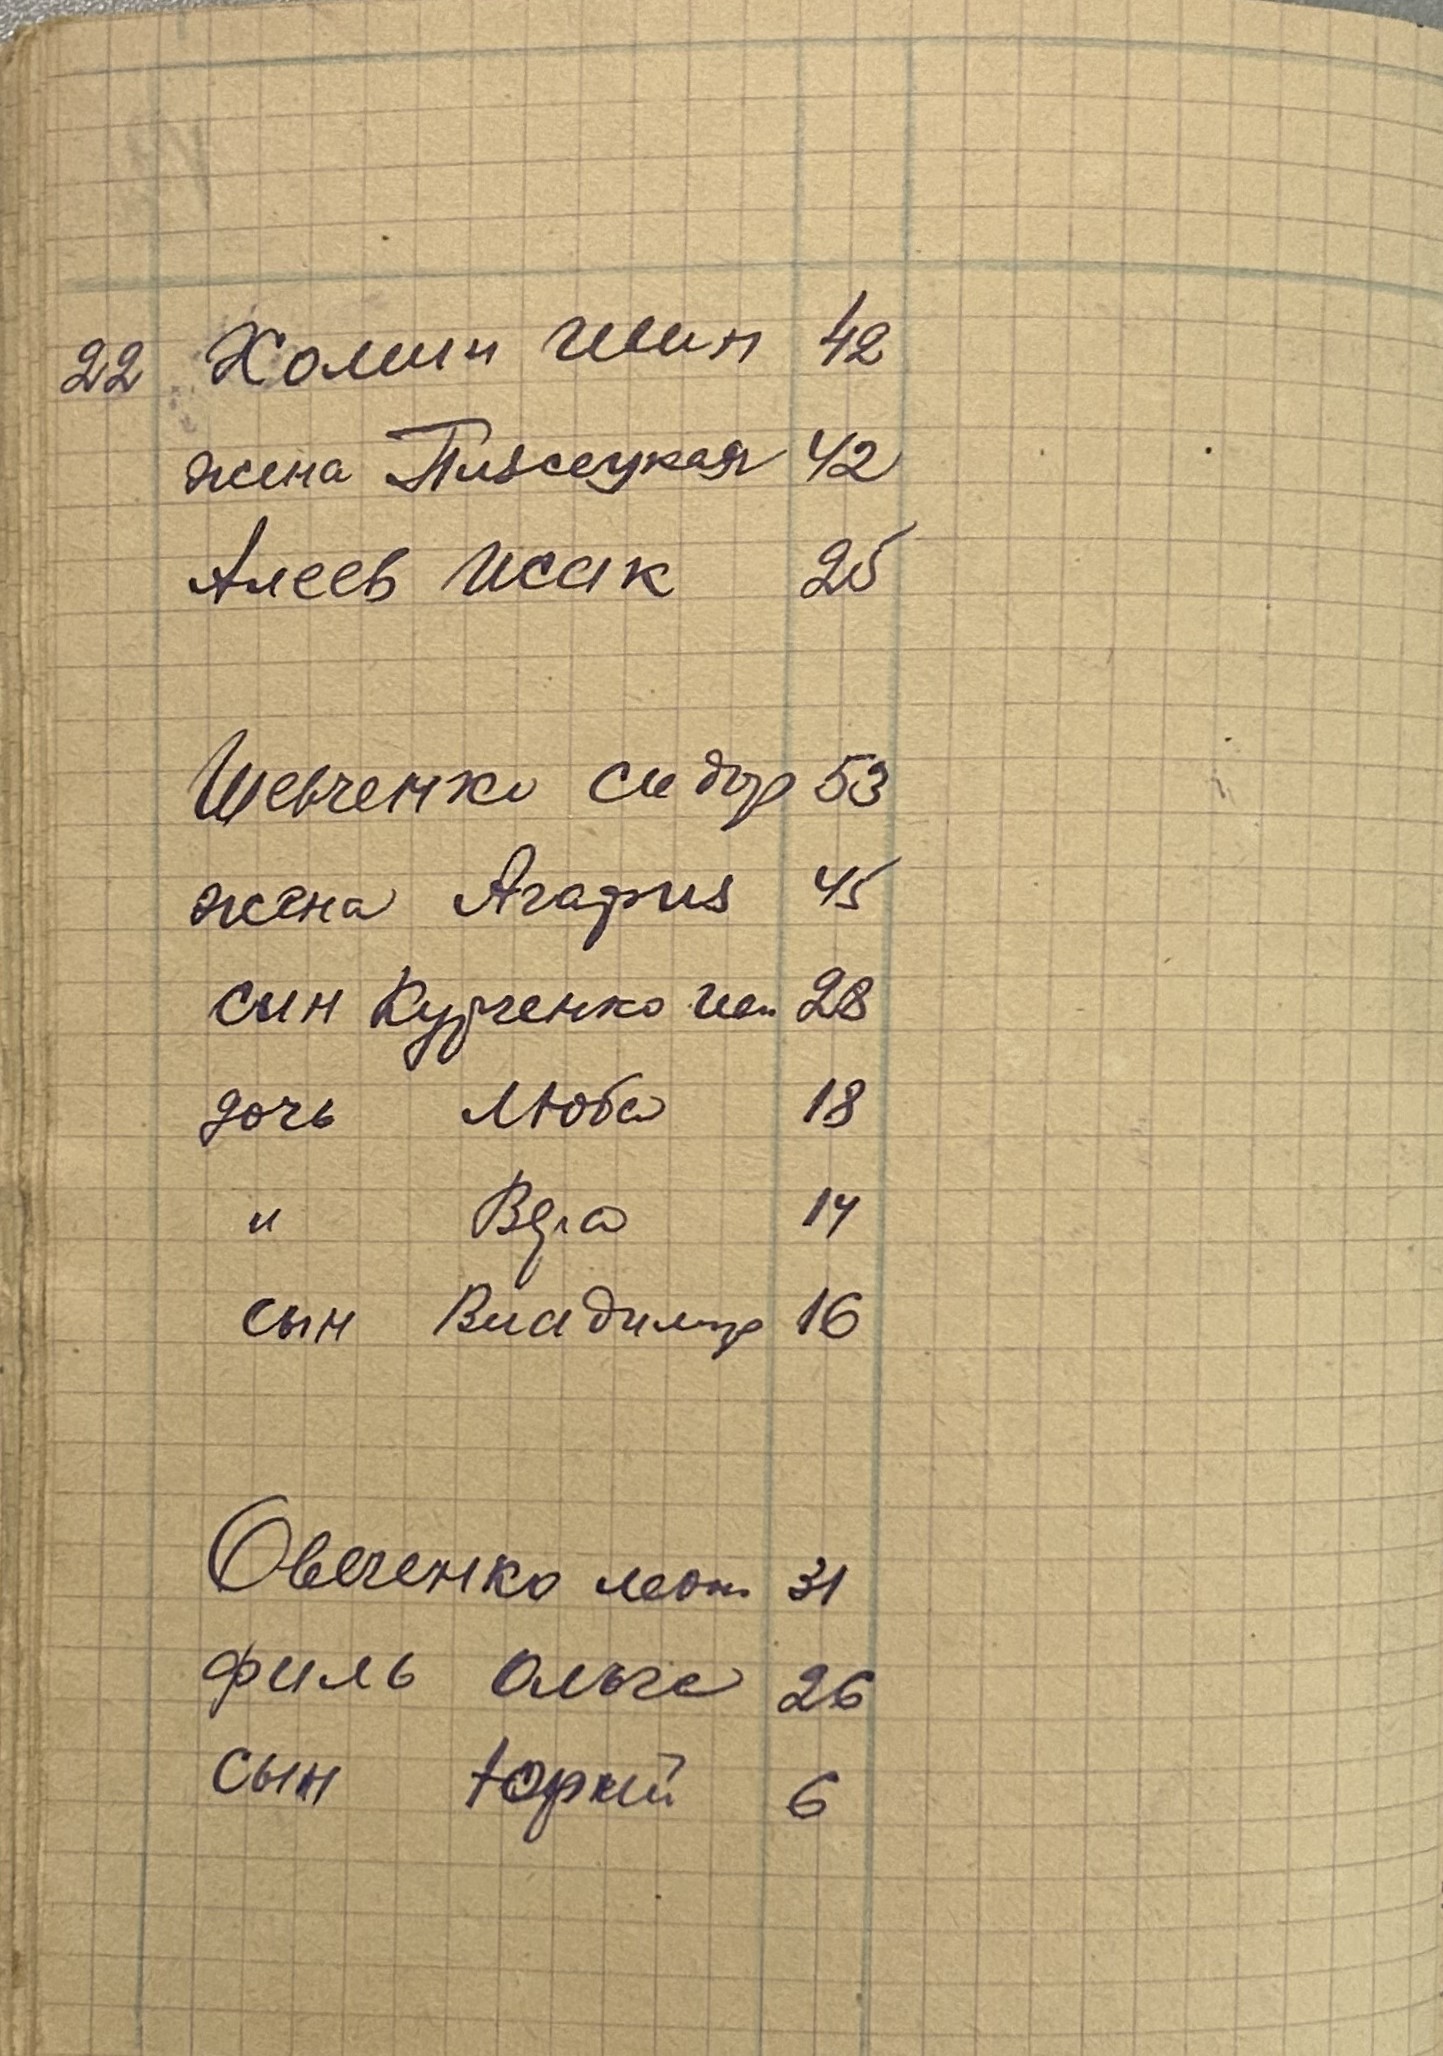 22 Холин Иван 42
жена Плясецкая 42
Алеев Исак 25
Шевченко Сидор 53
жена Агафия 45
сын Курченко Ив. 28
дочь Люба 18
" Вера 14
сын Владимир 16
Овеченко Леон. 31
Филь Ольга 26
сын Юрий 6